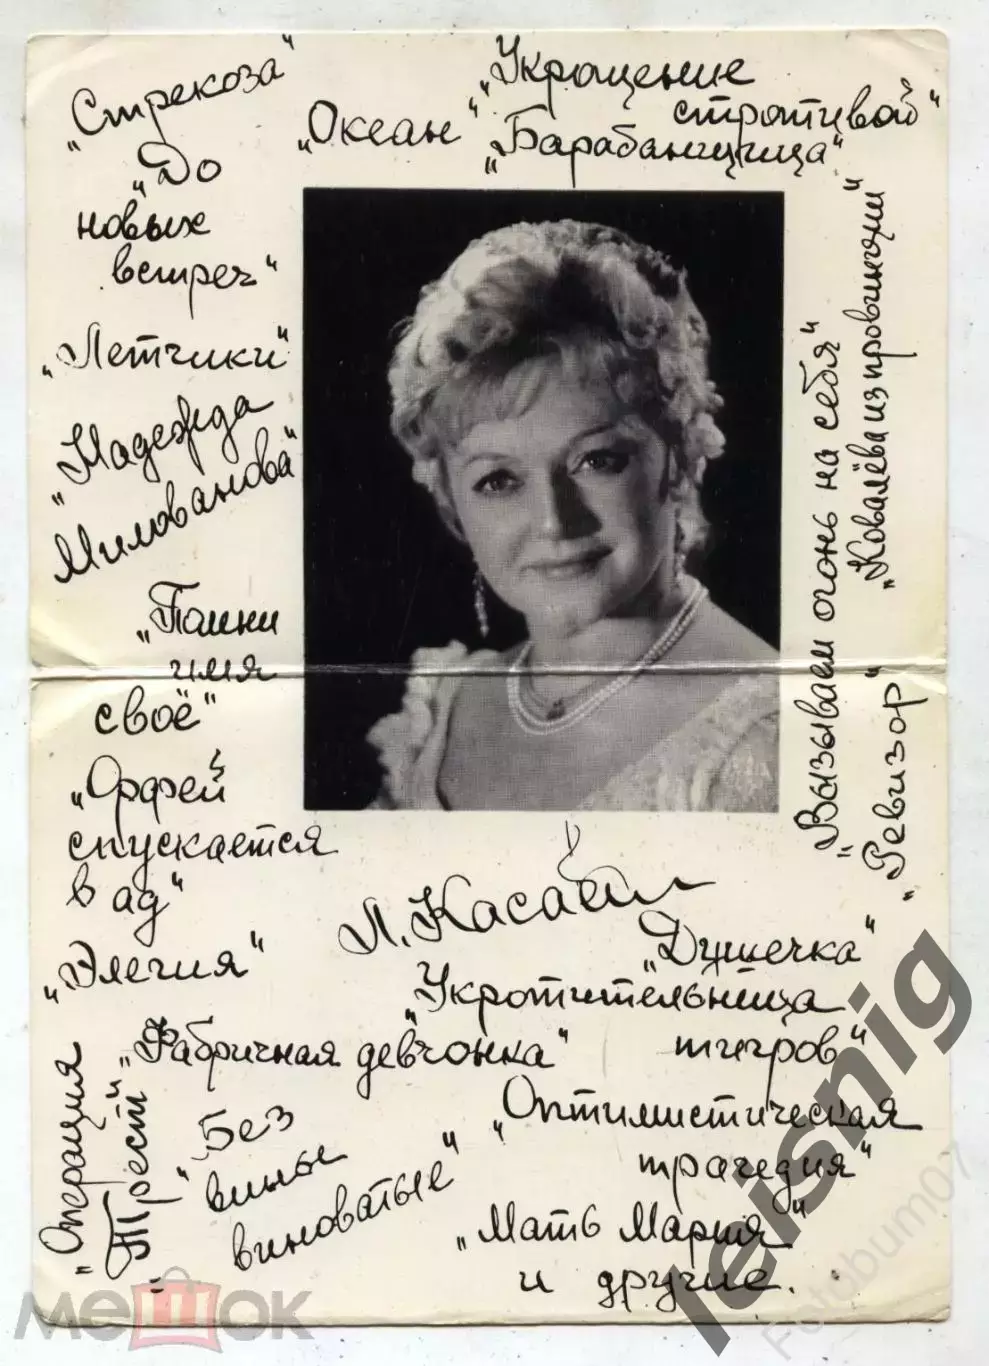 „Стрекоза"
„Океан"
„Укрощение
строптивой"
„Барабанщица"
„До
новых
встреч"
„Летчики"
„Надежда
Милованова"
„Помни
имя
своё"
„Орфей
спускается
в ад"
„Элегия"
„Вызываем огонь на себя"
„Ковалёва из провинции"
„Ревизор"
Л. Касаткина
„Душечка"
„Укротительница
тигров"
„Фабричная девчонка"
„Операция
„Трест"
„Без
вины
виноватые"
„Оптимистическая
трагедия"
„Мать Мария"
и другие.
leisnig
Fotoalbum07
мешок